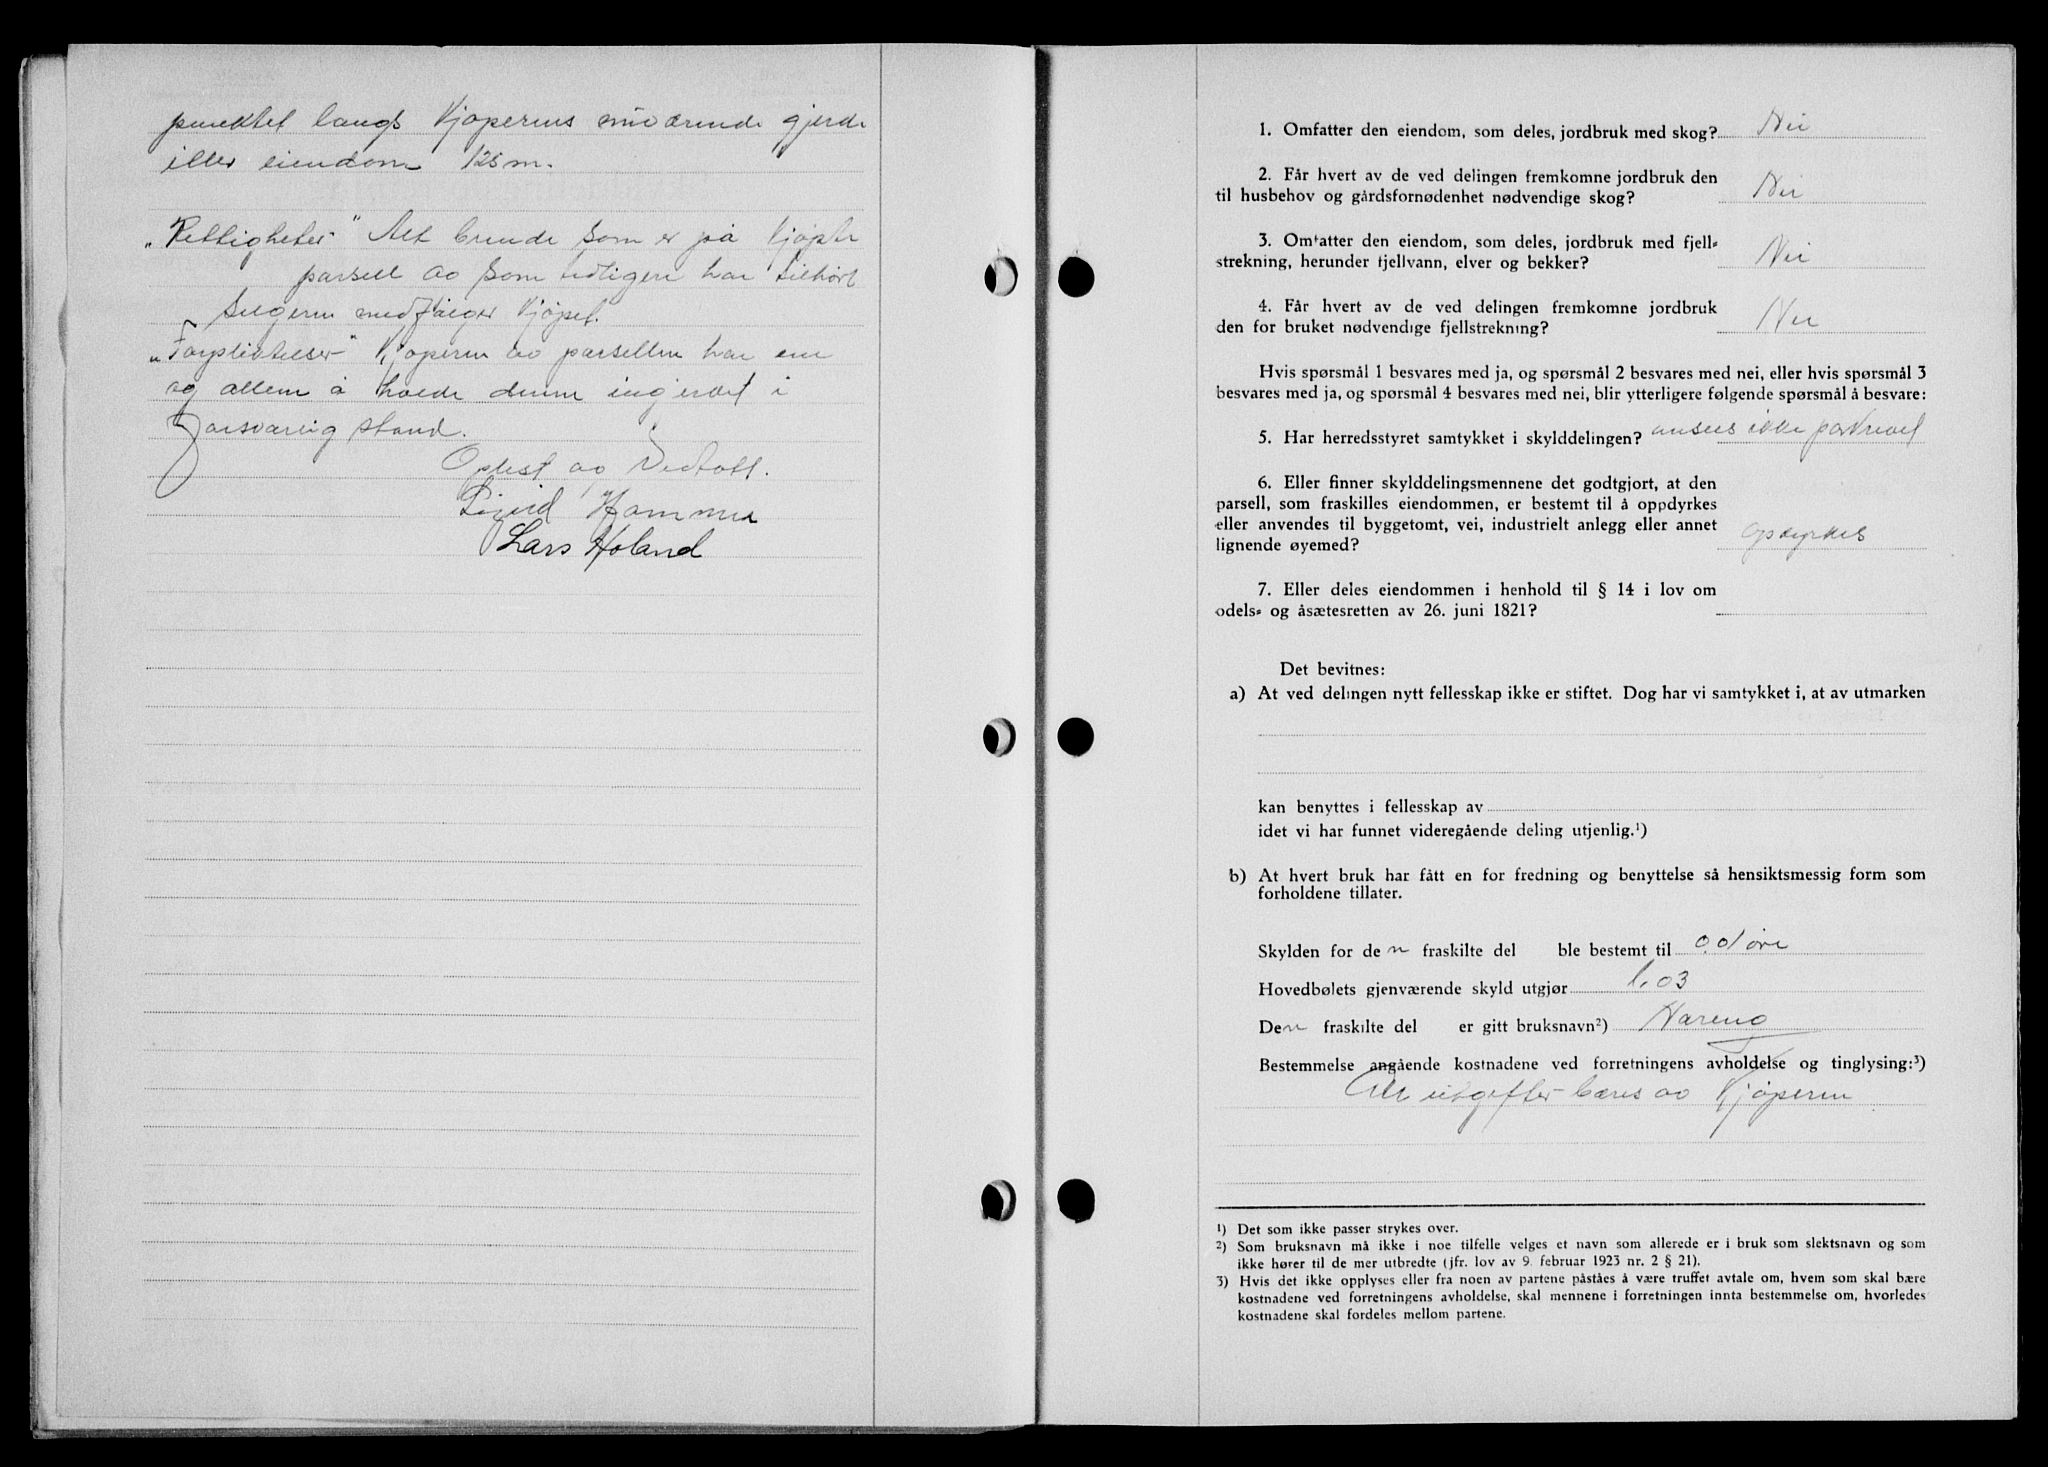 punktet langs Kjøperens nuværende gjerde
eller eiendom 125 m.
„Rettigheter" Alt                som er på kjøpte
parsell av som tidligere har tilhørt
selgeren medfølger kjøpet.
„Forpliktelser" Kjøperen av parsellen har ene
og allene å holde denne ingjerdet i
forsvarlig stand.
Oplest og Vedtatt.
Sigurd Hammer
Lars Holand
1. Omfatter den eiendom, som deles, jordbruk med skog? Nei
2. Får hvert av de ved delingen fremkomne jordbruk den
til husbehov og gårdsfornødenhet nødvendige skog? Nei
3. Omfatter den eiendom, som deles, jordbruk med fjell-
strekning, herunder fjellvann, elver og bekker? Nei
4. Får hvert av de ved delingen fremkomne jordbruk
den for bruket nødvendige fjellstrekning? Nei
Hvis spørsmål 1 besvares med ja, og spørsmål 2 besvares med nei, eller hvis spørsmål 3
besvares med ja, og spørsmål 4 besvares med nei, blir ytterligere følgende spørsmål å besvare:
5. Har herredsstyret samtykket i skylddelingen? ansees ikke påkrevet
6. Eller finner skylddelingsmennene det godtgjort, at den
parsell, som fraskilles eiendommen, er bestemt til å oppdyrkes
eller anvendes til byggetomt, vei, industrielt anlegg eller annet
lignende øyemed? opdyrkes
7. Eller deles eiendommen i henhold til § 14 i lov om
odels- og åsætesretten av 26. juni 1821?
Det bevitnes:
a) At ved delingen nytt fellesskap ikke er stiftet. Dog har vi samtykket i, at av utmarken
kan benyttes i fellesskap av
idet vi har funnet videregående deling utjenlig.¹)
b) At hvert bruk har fått en for fredning og benyttelse så hensiktsmessig form som
forholdene tillater.
Skylden for den fraskilte del ble bestemt til 0.01 øre
Hovedbølets gjenværende skyld utgjør 1.03
Den fraskilte del er gitt bruksnavn²)
Bestemmelse angående kostnadene ved forretningens avholdelse og tinglysing:³)
Alle utgifter bæres av Kjøperen
¹) Det som ikke passer strykes over.
²) Som bruksnavn må ikke i noe tilfelle velges et navn som allerede er i bruk som slektsnavn og som
ikke hører til de mer utbredte (jfr. lov av 9. februar 1923 nr. 2 § 21).
3) Hvis det ikke opplyses eller fra noen av partene påståes å være truffet avtale om, hvem som skal bære
kostnadene ved forretningens avholdelse, skal mennene i forretningen innta bestemmelse om, hvorledes
kostnadene skal fordeles mellom partene.